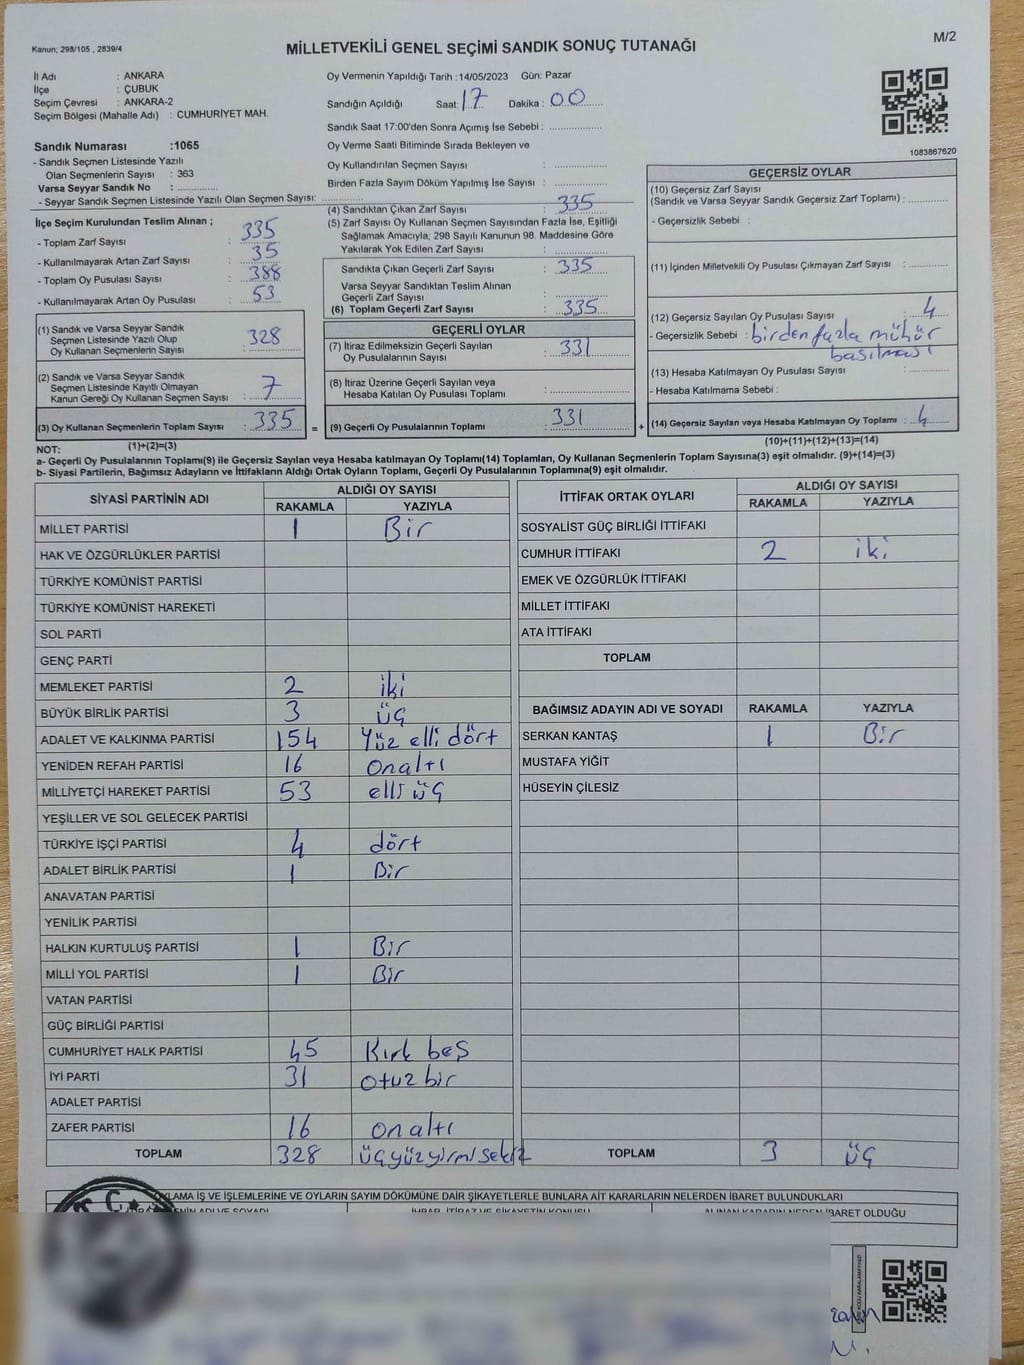 Kanun; 298/105 , 2839/4
MİLLETVEKİLİ GENEL SEÇİMİ SANDIK SONUÇ TUTANAĞI
M/2
İl Adı : ANKARA
İlçe : ÇUBUK
Seçim Çevresi : ANKARA-2
Seçim Bölgesi (Mahalle Adı) : CUMHURİYET MAH.
Sandık Numarası :1065
- Sandık Seçmen Listesinde Yazılı
Olan Seçmenlerin Sayısı : 363
Varsa Seyyar Sandık No : ............
- Seyyar Sandık Seçmen Listesinde Yazılı Olan Seçmen Sayısı: ............
Oy Vermenin Yapıldığı Tarih :14/05/2023 Gün: Pazar
Sandığın Açıldığı Saat: 17 Dakika : 00
Sandık Saat 17:00'den Sonra Açımış İse Sebebi : ............
Oy Verme Saati Bitiminde Sırada Bekleyen ve
Oy Kullandırılan Seçmen Sayısı : ............
Birden Fazla Sayım Döküm Yapılmış İse Sayısı : ............
1083867620
İlçe Seçim Kurulundan Teslim Alınan ;
- Toplam Zarf Sayısı : 335
- Kullanılmayarak Artan Zarf Sayısı : 35
- Toplam Oy Pusulası Sayısı : 388
- Kullanılmayarak Artan Oy Pusulası : 53
(1) Sandık ve Varsa Seyyar Sandık
Seçmen Listesinde Yazılı Olup
Oy Kullanan Seçmenlerin Sayısı : 328
(2) Sandık ve Varsa Seyyar Sandık
Seçmen Listesinde Kayıtlı Olmayan
Kanun Gereği Oy Kullanan Seçmen Sayısı : 7
(3) Oy Kullanan Seçmenlerin Toplam Sayısı : 335 =
(4) Sandıktan Çıkan Zarf Sayısı : 335
(5) Zarf Sayısı Oy Kullanan Seçmen Sayısından Fazla İse, Eşitliği
Sağlamak Amacıyla; 298 Sayılı Kanunun 98. Maddesine Göre
Yakılarak Yok Edilen Zarf Sayısı : ............
Sandıkta Çıkan Geçerli Zarf Sayısı : 335
Varsa Seyyar Sandıktan Teslim Alınan
Geçerli Zarf Sayısı : ............
(6) Toplam Geçerli Zarf Sayısı : 335
GEÇERLİ OYLAR
(7) İtiraz Edilmeksizin Geçerli Sayılan
Oy Pusulalarının Sayısı : 331
(8) İtiraz Üzerine Geçerli Sayılan veya
Hesaba Katılan Oy Pusulası Toplamı : ............
(9) Geçerli Oy Pusulalarının Toplamı : 331 +
GEÇERSİZ OYLAR
(10) Geçersiz Zarf Sayısı
(Sandık ve Varsa Seyyar Sandık Geçersiz Zarf Toplamı) : ............
- Geçersizlik Sebebi :
(11) İçinden Milletvekili Oy Pusulası Çıkmayan Zarf Sayısı : ............
(12) Geçersiz Sayılan Oy Pusulası Sayısı : 4
- Geçersizlik Sebebi : birden fazla mühür
basılması
(13) Hesaba Katılmayan Oy Pusulası Sayısı : ............
- Hesaba Katılmama Sebebi :
(14) Geçersiz Sayılan veya Hesaba Katılmayan Oy Toplamı : 4
NOT: (1)+(2)=(3)
(10)+(11)+(12)+(13)=(14)
a- Geçerli Oy Pusulalarının Toplamı(9) ile Geçersiz Sayılan veya Hesaba Katılmayan Oy Toplamı(14) Toplamları, Oy Kullanan Seçmenlerin Toplam Sayısına(3) eşit olmalıdır. (9)+(14)=(3)
b- Siyasi Partilerin, Bağımsız Adayların ve İttifakların Aldığı Ortak Oyların Toplamı, Geçerli Oy Pusulalarının Toplamına(9) eşit olmalıdır.
SİYASİ PARTİNİN ADI ALDIĞI OY SAYISI
RAKAMLA YAZIYLA
MİLLET PARTİSİ 1 Bir
HAK VE ÖZGÜRLÜKLER PARTİSİ
TÜRKİYE KOMÜNİST PARTİSİ
TÜRKİYE KOMÜNİST HAREKETİ
SOL PARTİ
GENÇ PARTİ
MEMLEKET PARTİSİ 2 iki
BÜYÜK BİRLİK PARTİSİ 3 üç
ADALET VE KALKINMA PARTİSİ 154 Yüz elli dört
YENİDEN REFAH PARTİSİ 16 onaltı
MİLLİYETÇİ HAREKET PARTİSİ 53 elli üç
YEŞİLLER VE SOL GELECEK PARTİSİ
TÜRKİYE İŞÇİ PARTİSİ 4 dört
ADALET BİRLİK PARTİSİ 1 Bir
ANAVATAN PARTİSİ
YENİLİK PARTİSİ
HALKIN KURTULUŞ PARTİSİ 1 Bir
MİLLİ YOL PARTİSİ 1 Bir
VATAN PARTİSİ
GÜÇ BİRLİĞİ PARTİSİ
CUMHURİYET HALK PARTİSİ 45 Kırk beş
İYİ PARTİ 31 otuz bir
ADALET PARTİSİ
ZAFER PARTİSİ 16 onaltı
TOPLAM 328 üçyüzyirmisekiz
İTTİFAK ORTAK OYLARI ALDIĞI OY SAYISI
RAKAMLA YAZIYLA
SOSYALİST GÜÇ BİRLİĞİ İTTİFAKI
CUMHUR İTTİFAKI 2 iki
EMEK VE ÖZGÜRLÜK İTTİFAKI
MİLLET İTTİFAKI
ATA İTTİFAKI
TOPLAM
BAĞIMSIZ ADAYIN ADI VE SOYADI RAKAMLA YAZIYLA
SERKAN KANTAŞ 1 Bir
MUSTAFA YİĞİT
HÜSEYİN ÇİLESİZ
TOPLAM 3 üç
LAMA İŞ VE İŞLEMLERİNE VE OYLARIN SAYIM DÖKÜMÜNE DAİR ŞİKAYETLERLE BUNLARA AİT KARARLARIN NELERDEN İBARET BULUNDUKLARI
ENİN ADI VE SOYADI İHBAR, İTİRAZ VE ŞİKAYETİN KONUSU ALINAN KARARIN NEDEN İBARET OLDUĞU